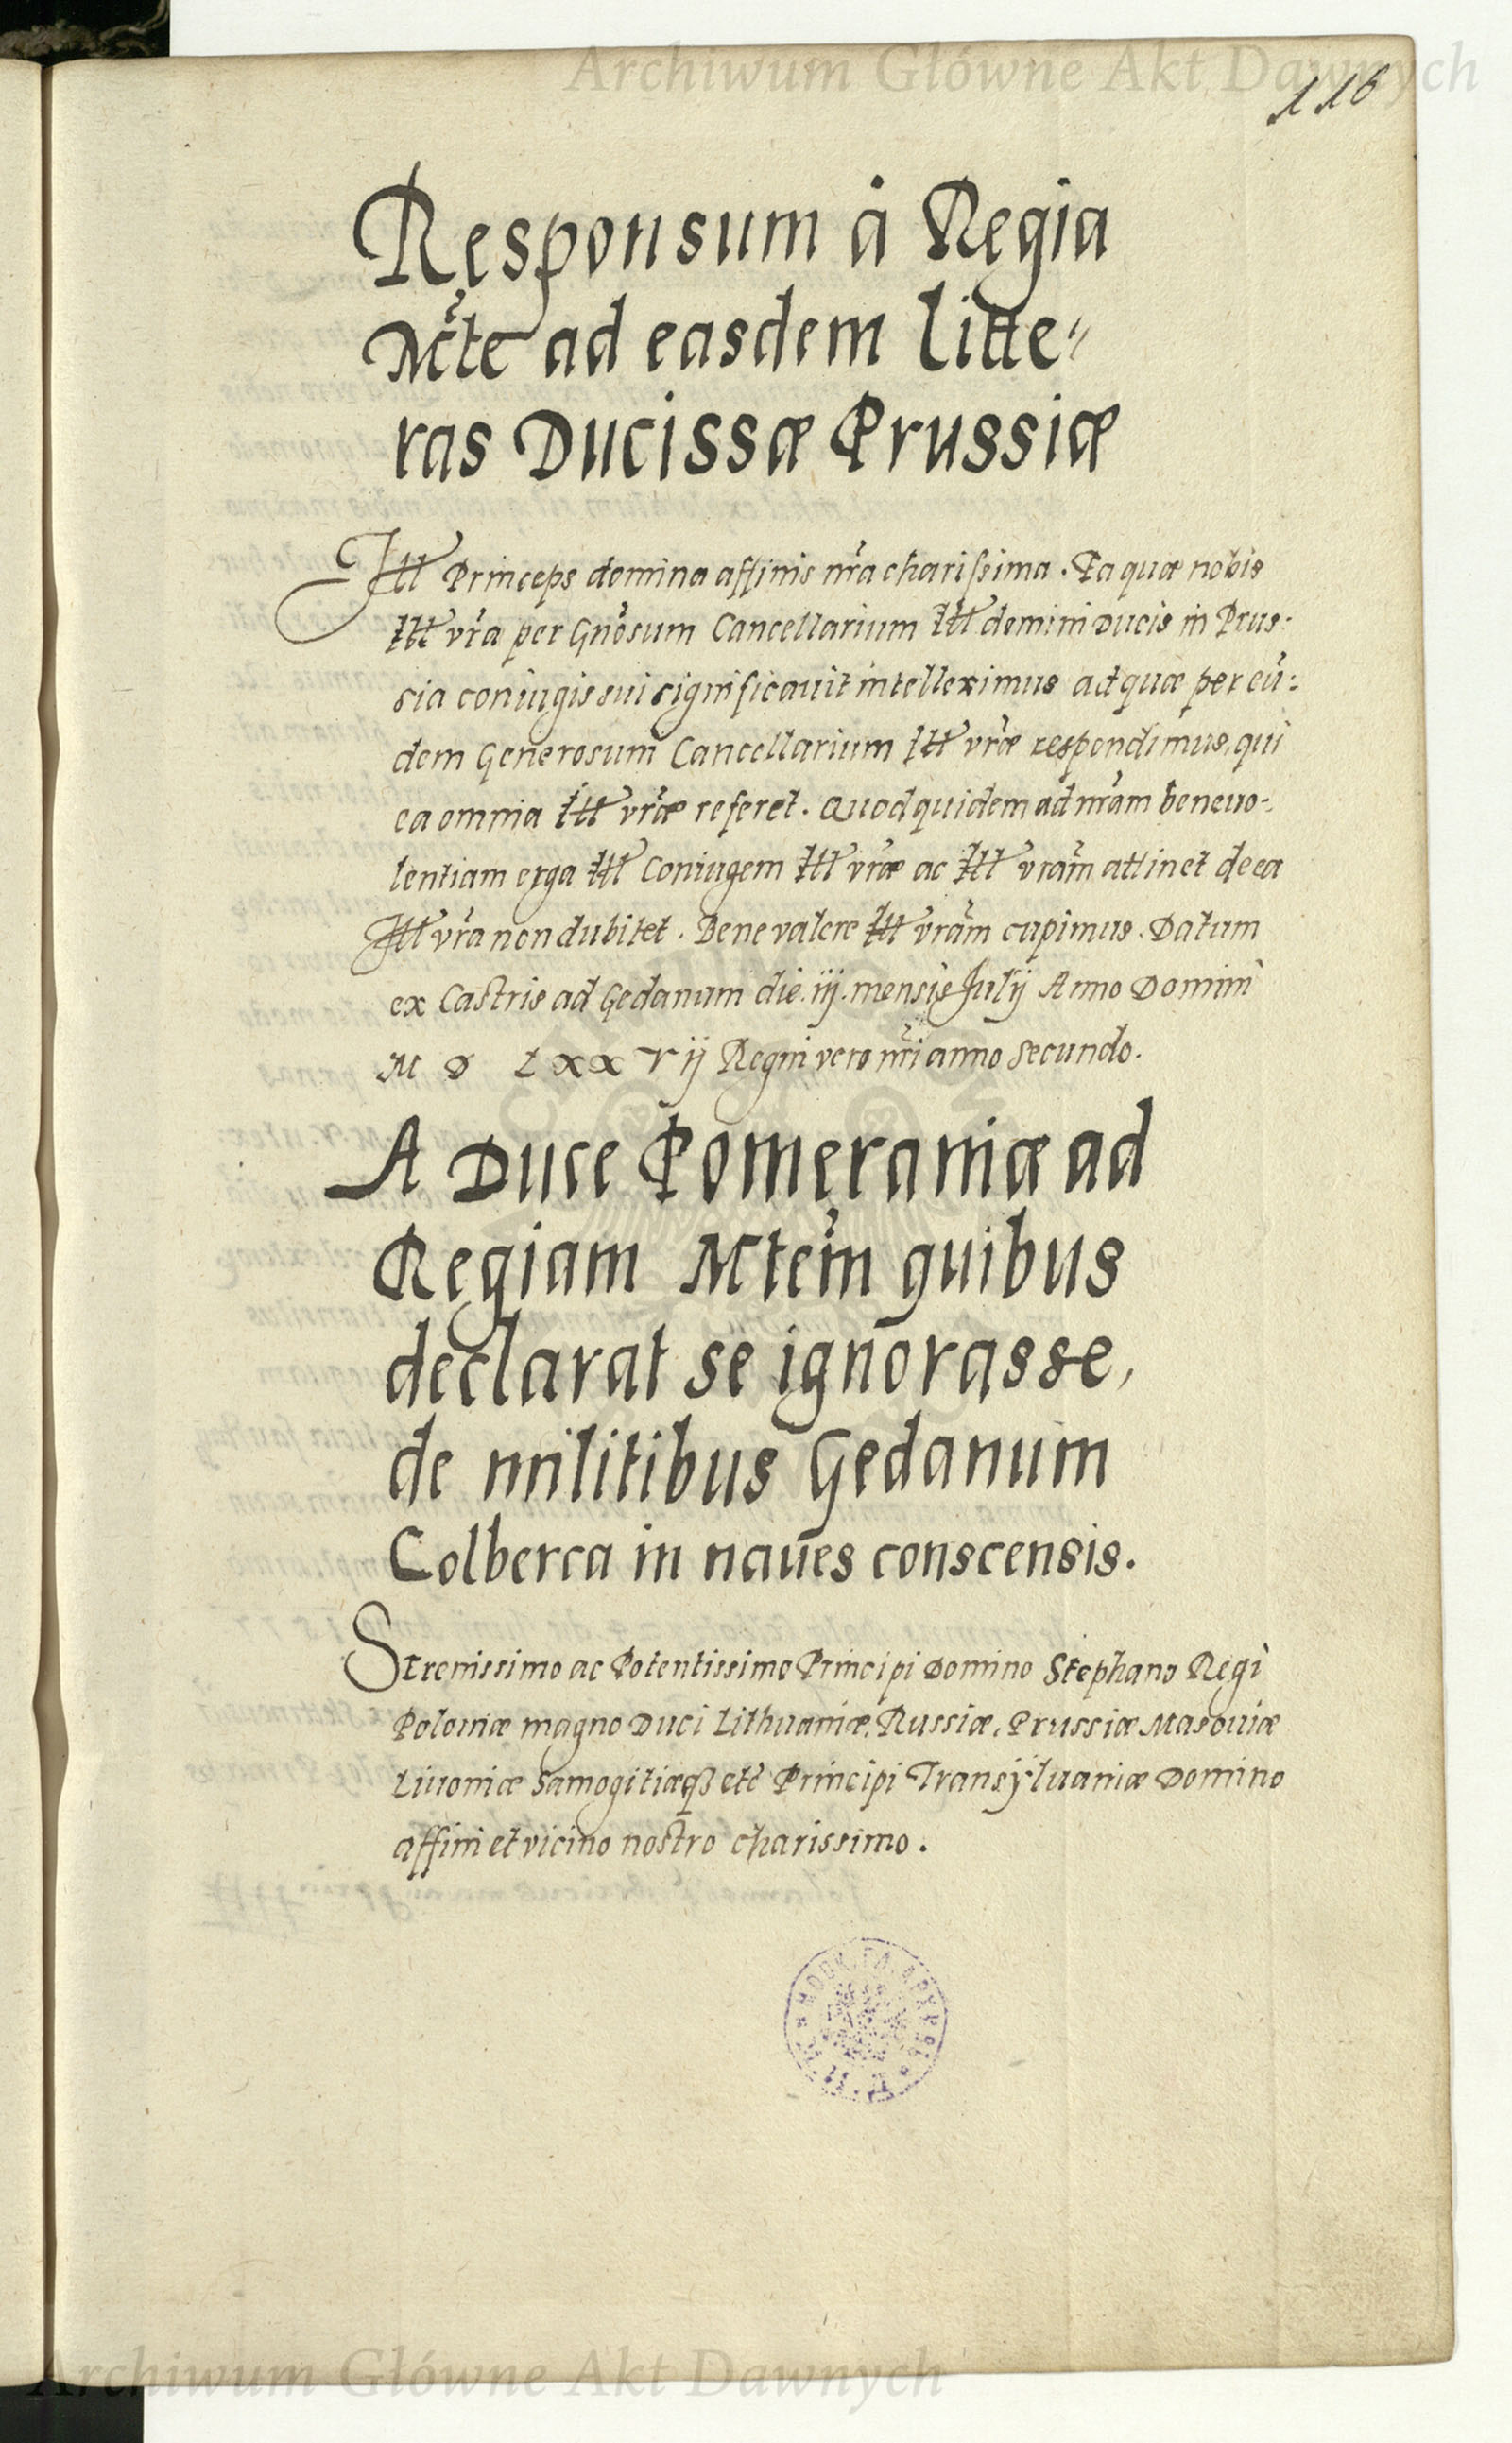 Archiwum Główne Akt Dawnych
116
Responsum à Regia
Mte ad easdem litte=
ras Ducissæ Prussiæ
Ill Princeps domina affinis nra charissima. Ea quæ nobis
Ill vra per Gnosum Cancellarium Ill domini Ducis in Prus:
sia coniugis sui significauit intelleximus ad quæ per eū:
dem Generosum Cancellarium Ill vræ respondimus, qui
ea omnia Ill vræ referet. Quod quidem ad nram beneuo:
lentiam erga Ill Coniugem Ill vræ ac Ill vram attinet de ea
Ill vra non dubitet. Bene valere Ill vram cupimus. Datum
ex Castris ad Gedanum die. iij. mensis Julij Anno Domini
M D LXXVij Regni vero nri anno secundo.
A Duce Pomeraniæ ad
Regiam Mtem quibus
declarat se ignorasse,
de militibus Gedanum
Colberca in naues conscensis.
Serenissimo ac Potentissimo Principi Domino Stephano Regi
Poloniæ magno Duci Lithuaniæ, Russiæ, Prussiæ Masouiæ
Liuoniæ Samogitiæq3 etc Principi Transÿluaniæ Domino
affini et vicino nostro charissimo.
Archiwum Główne Akt Dawnych